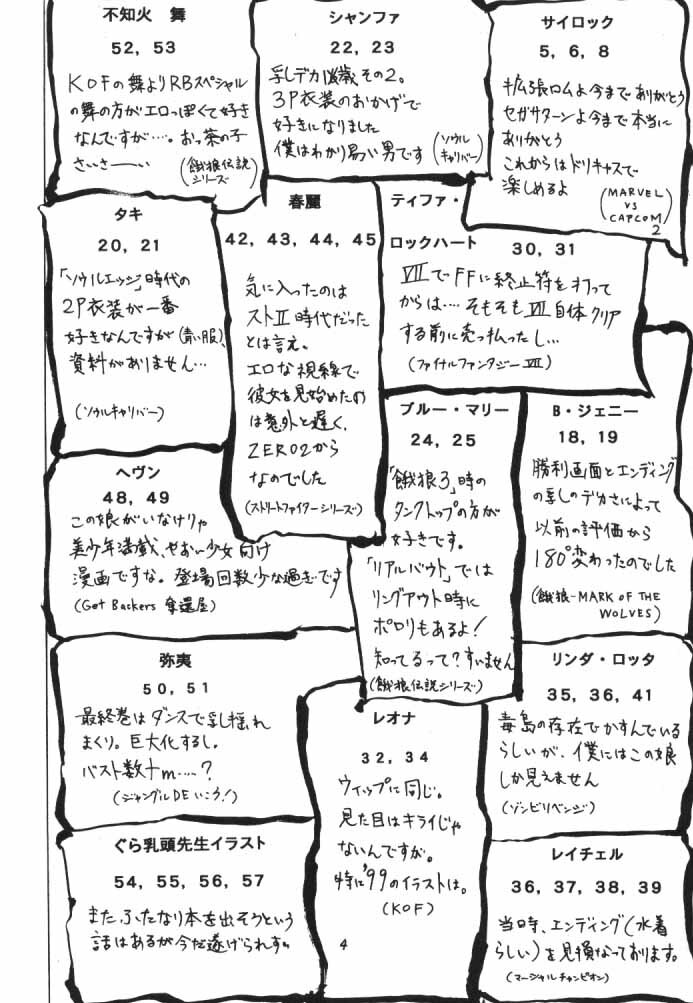 不知火　舞
52, 53
KOFの舞よりRBスペシャル
の舞の方がエロっぽくて好き
なんですが……。おっ茶の子
さいさーーい
(餓狼伝説
シリーズ)
シャンファ
22, 23
乳デカ 歳 その2。
3P衣装のおかげで
好きになりました
僕はわかり易い男です
(ソウル
キャリバー)
サイロック
5, 6, 8
拡張ロムよ今までありがとう
セガサターンよ今まで本当に
ありがとう
これからはドリキャスで
楽しめるよ
(MARVEL
VS
CAPCOM
2
タキ
20, 21
「ソウルエッジ」時代の
2P衣装が一番
好きなんですが(青い服)、
資料がありません…
(ソウルキャリバー)
春麗
42, 43, 44, 45
気に入ったのは
ストⅡ時代だった
とは言え。
エロな視線で
彼女を見始めたの
は意外と遅く、
ZERO2から
なのでした
(ストリートファイターシリーズ)
ティファ・
ロックハート
30, 31
ⅦでFFに終止符を打って
からは…. そもそもⅦ自体クリア
する前に売っ払ったし…
(ファイナルファンタジーⅦ)
ブルー・マリー
24, 25
「餓狼3」時の
タンクトップの方が
好きです。
「リアルバウト」では
リングアウト時に
ポロリもあるよ！
知ってるって？すいません
(餓狼伝説シリーズ)
B・ジェニー
18, 19
勝利画面とエンディング
の乳のデカさによって
以前の評価から
180°変わったのでした
(餓狼-MARK OF THE
WOLVES)
ヘヴン
48, 49
この娘がいなけりゃ
美少年満載、やおい少女向け
漫画ですな。登場回数少な過ぎです
(Get Backers 奪還屋)
弥夷
50, 51
最終巻はダンスで乳揺れ
まくり。巨大化するし。
バスト数十m……？
(ジャングルDEいこう！)
レオナ
32, 34
ウィップに同じ。
見た目はキライじゃ
ないんですが。
特に'99のイラストは。
(KOF)
リンダ・ロッタ
35, 36, 41
毒島の存在でかすんでいる
らしいが、僕にはこの娘
しか見えません
(ゾンビリベンジ)
ぐら乳頭先生イラスト
54, 55, 56, 57
また、ふたなり本を出そうという
話はあるが今だ遂げられず。
レイチェル
36, 37, 38, 39
当時、エンディング(水着
らしい)を見損なっております。
(マーシャルチャンピオン)
4